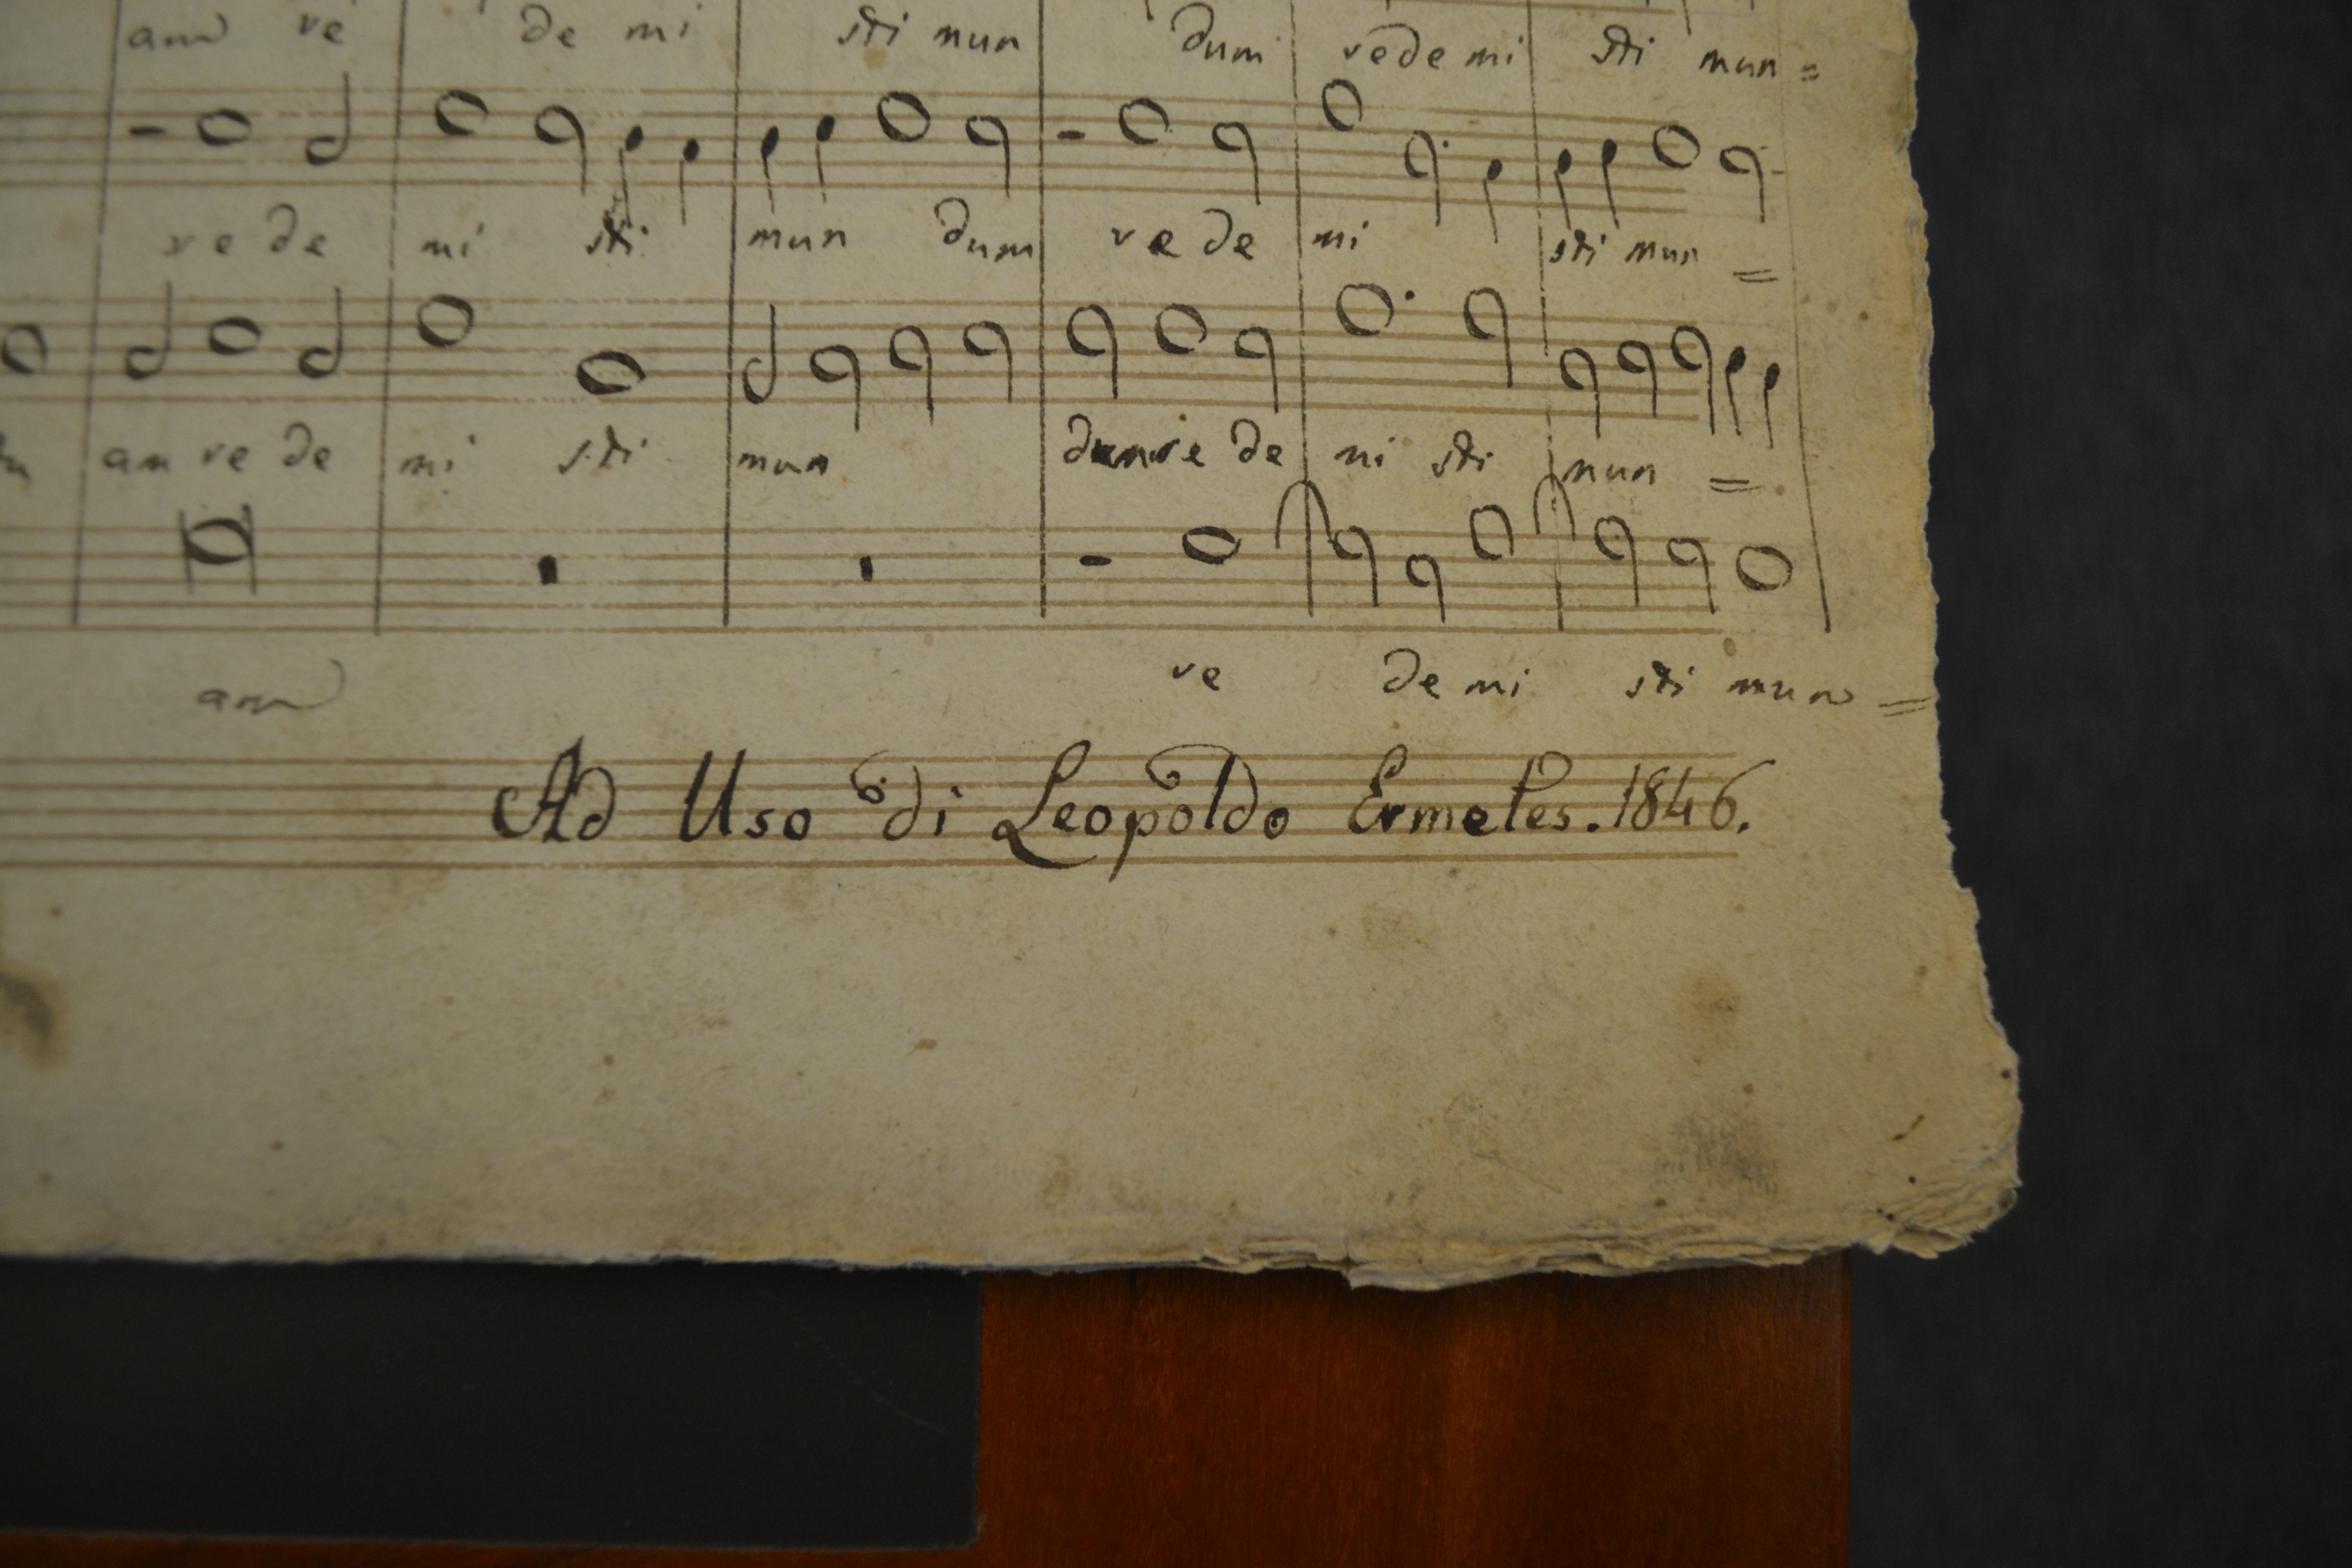 am re de mi sti mun dum redemi sti mun=
re de mi sti mun dum re de mi sti mun =
am re de mi sti mun dum re de mi sti mun =
am re de mi sti mun =
Ad Uso di Leopoldo Ermetes. 1846.